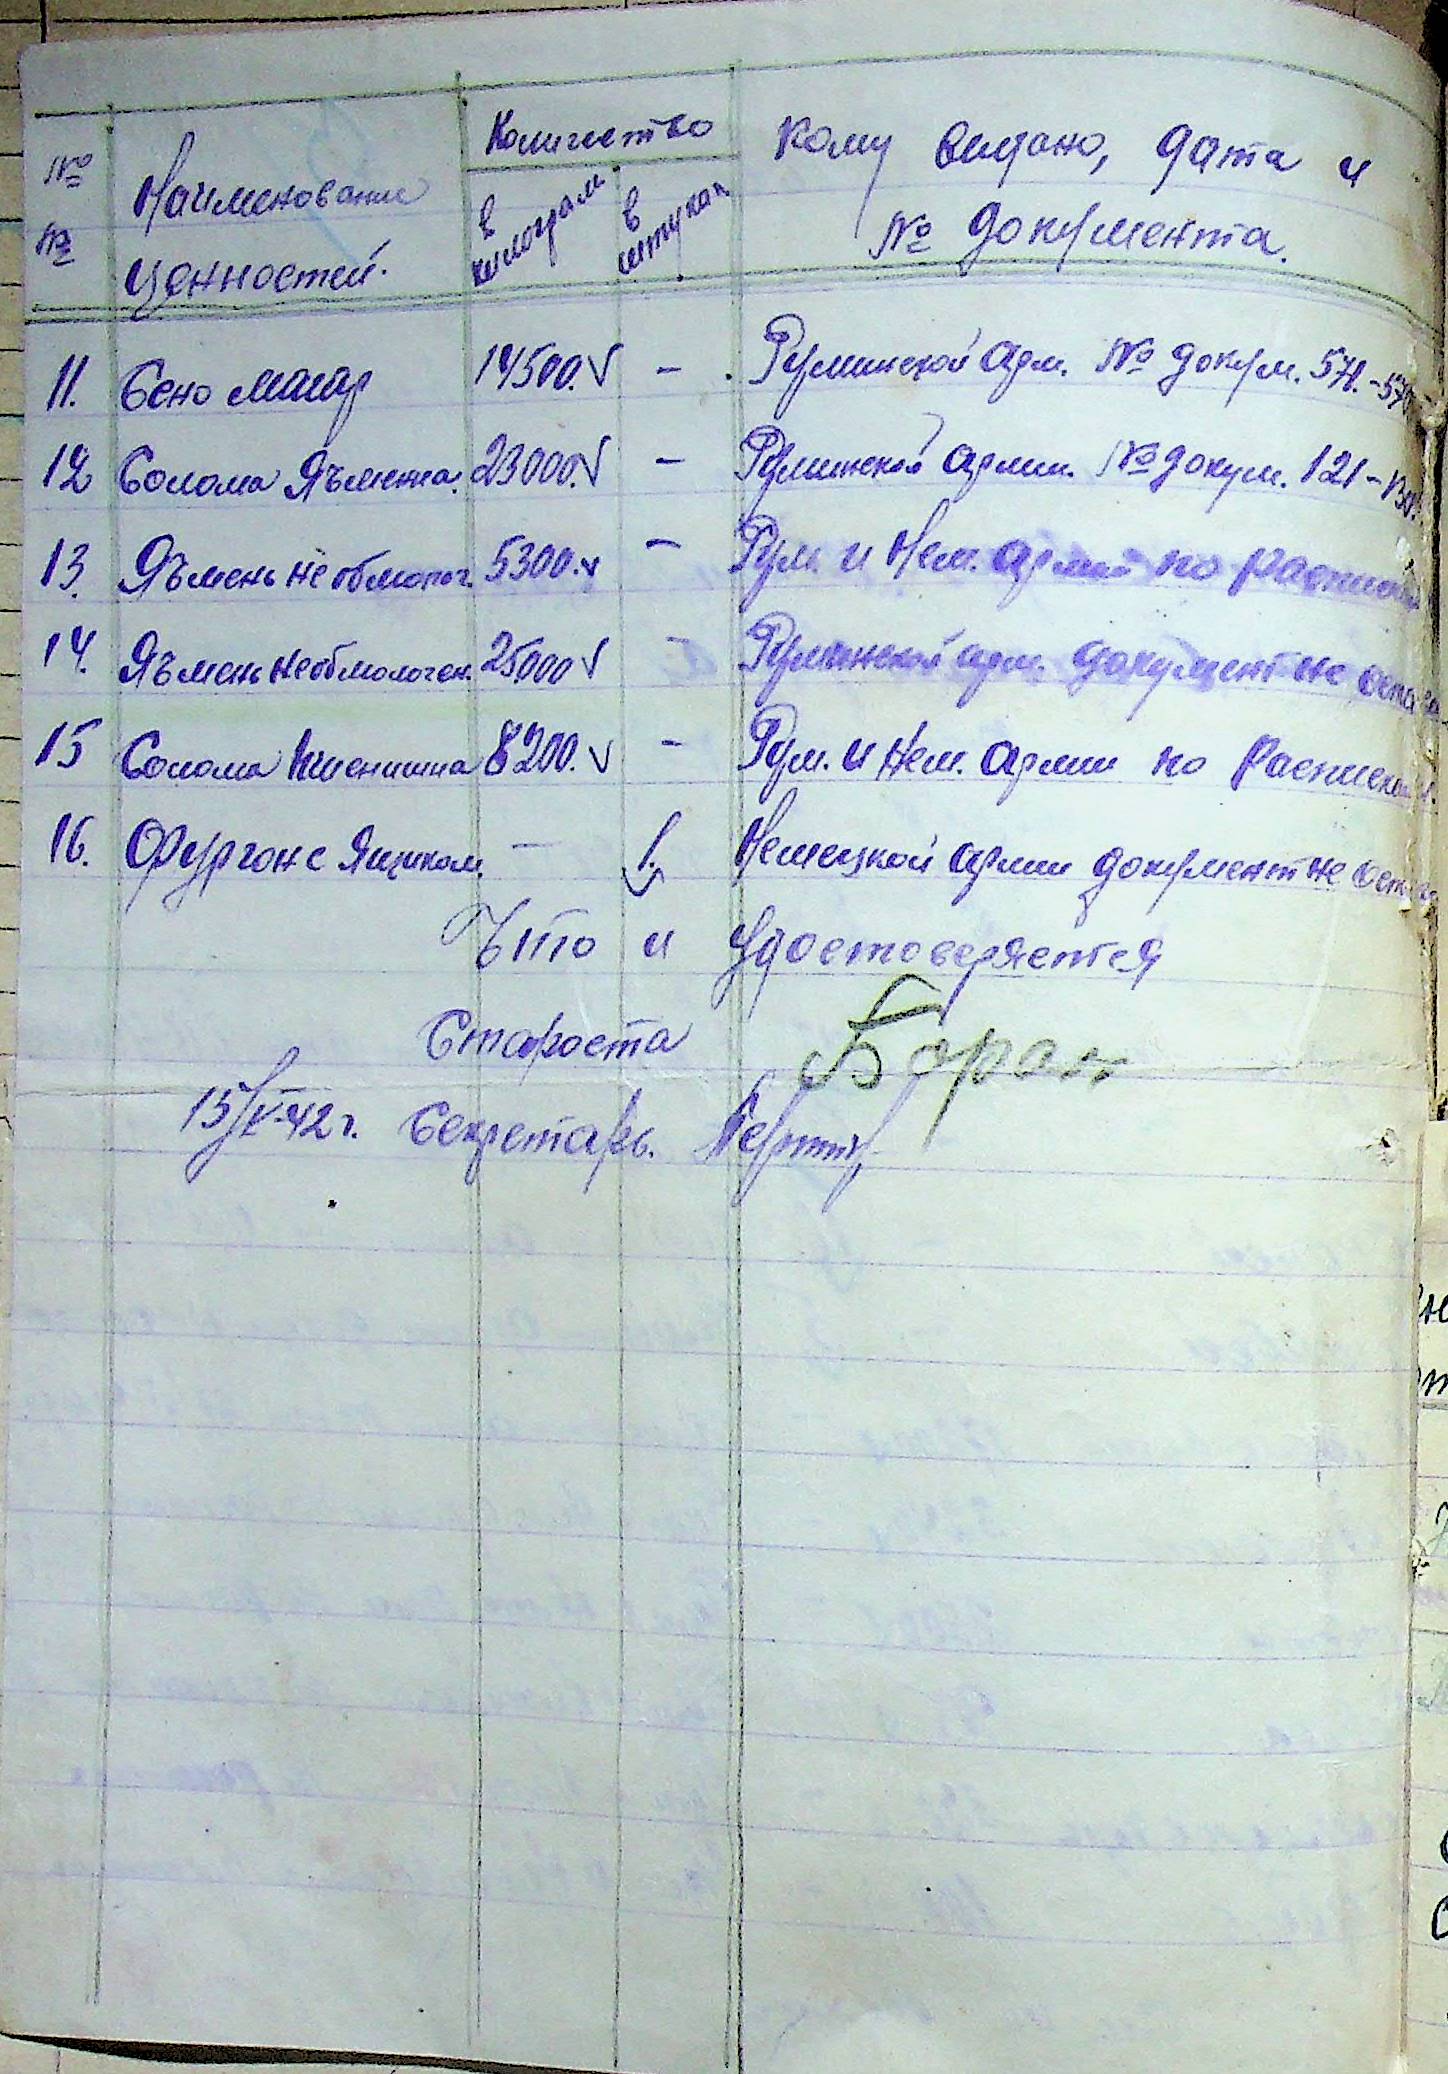 № № Наименование ценностей.
Количество
в килограм в штуках
Кому выдано, дата и
№ документа.
11. Сено магар 14500. V – Румынской арм. № докум. 571.-570
12 Солома Яъменна. 23000. V – Румынской армии. № докум. 121-130.
13. Яъмень не обмолоч. 5300. v – Рум. и Нем. армий по распискам
14. Яъмень необмолочен. 25000 V – Румынской арм. документ не
15 Солома Пшенишна 8200. v – Рум. и Нем. армии по Распискам.
16. Фургон с Ящиком. – 1. v Немецкой армии документ не
Что и Удостоверяется
Староста Боран
15/V-42 г. Секретарь.